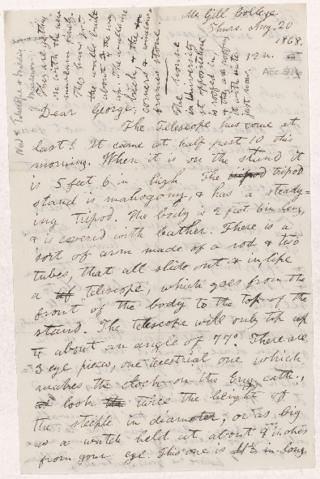 Mc Gill College
Thurs. Aug. 20
1868.
12 M.
Dear George,
The Telescope has come at
last! It came at half past 10 this
morning. When it is on the stand it
is 5 feet 6 in high. The tripod
stand is mahogany, & has a steady-
ing tripod. The body is 2 feet 8 in long,
& is covered with leather. There is a
sort of arm made of a rod & two
tubes, that all slide out & in, like
a telescope, which goes from the
front of the body to the top of the
stand. The telescope will only tip up
to about an angle of 77°. There are
3 eye pieces, one terrestrial one which
makes the clock on the Eng. cath.,
look twice the height of
the steeple in diameter; or as big
as a watch held at about 9 inches
from your eye. This one is in long,
The house
in University
st opposite
is roofed in,
just now,
They are getting
on with the new
museum
the walls built
about
up. The
brick, & the
corners & windows
stone